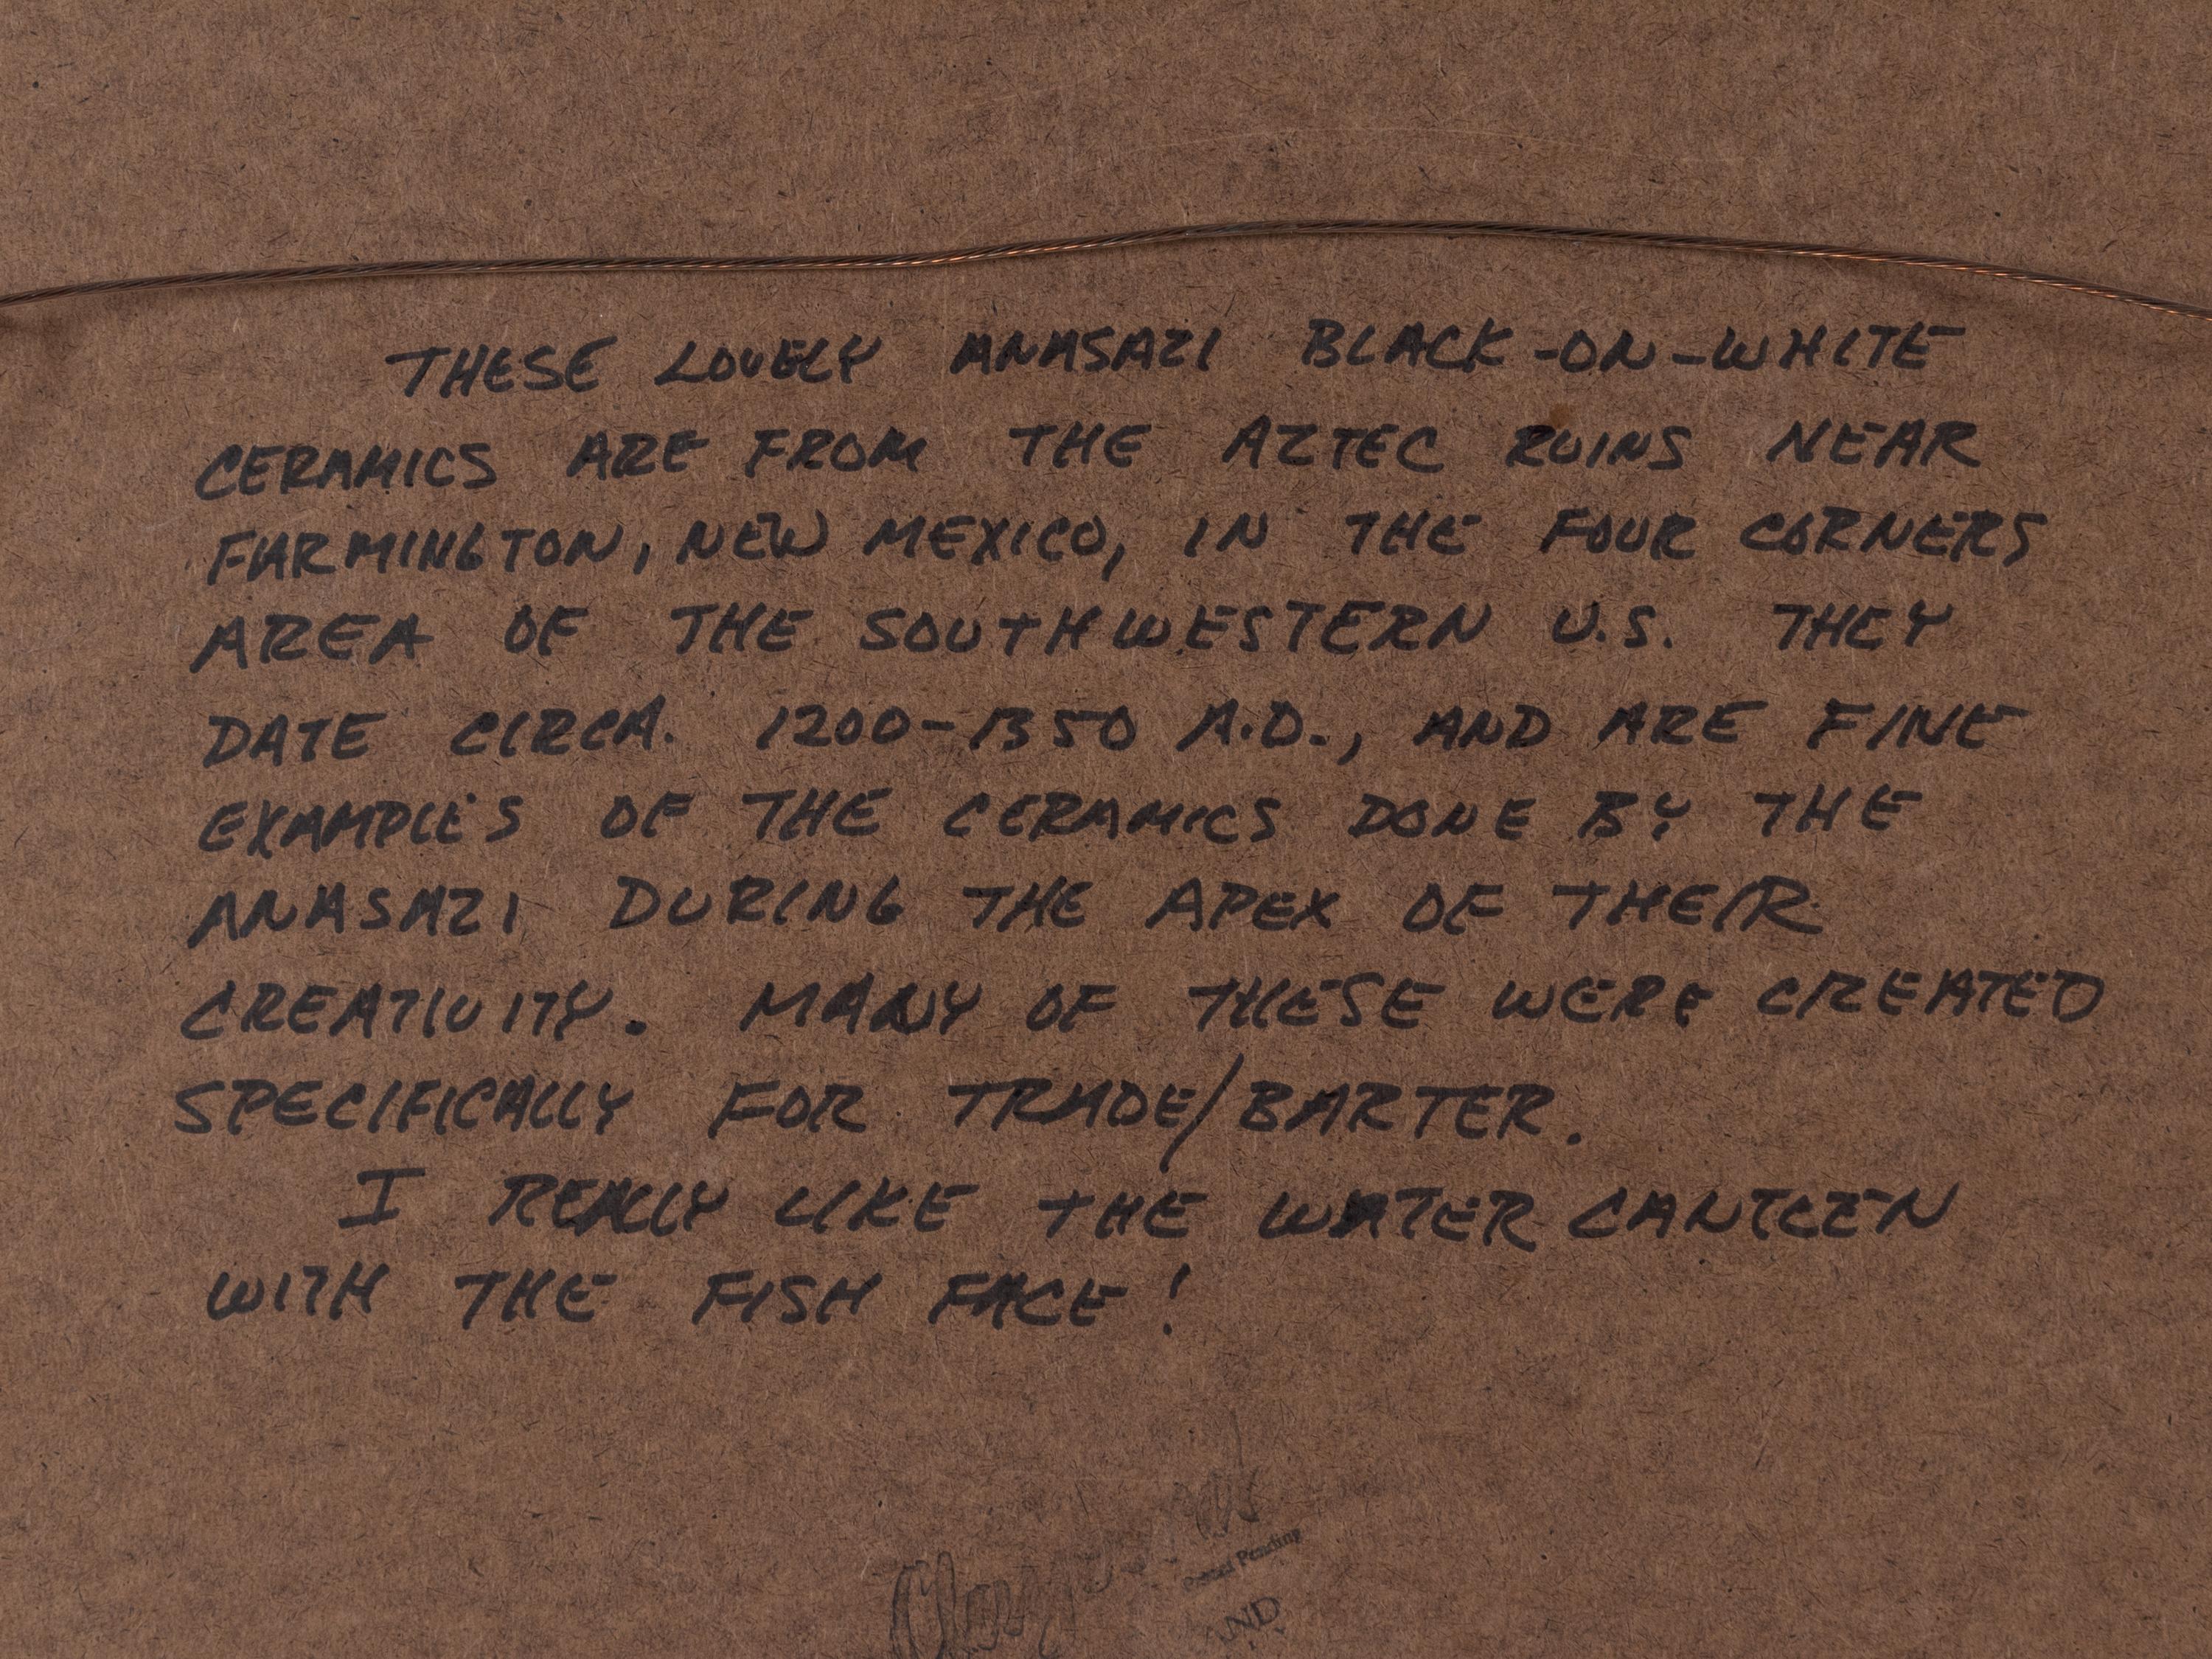 THESE LOVELY ANASAZI BLACK-ON-WHITE
CERAMICS ARE FROM THE AZTEC RUINS NEAR
FARMINGTON, NEW MEXICO, IN THE FOUR CORNERS
AREA OF THE SOUTHWESTERN U.S. THEY
DATE CIRCA. 1200-1350 A.D., AND ARE FINE
EXAMPLES OF THE CERAMICS DONE BY THE
ANASAZI DURING THE APEX OF THEIR
CREATIVITY. MANY OF THESE WERE CREATED
SPECIFICALLY FOR TRADE/BARTER.
I REALLY LIKE THE WATER CANTEEN
WITH THE FISH FACE!
Pending